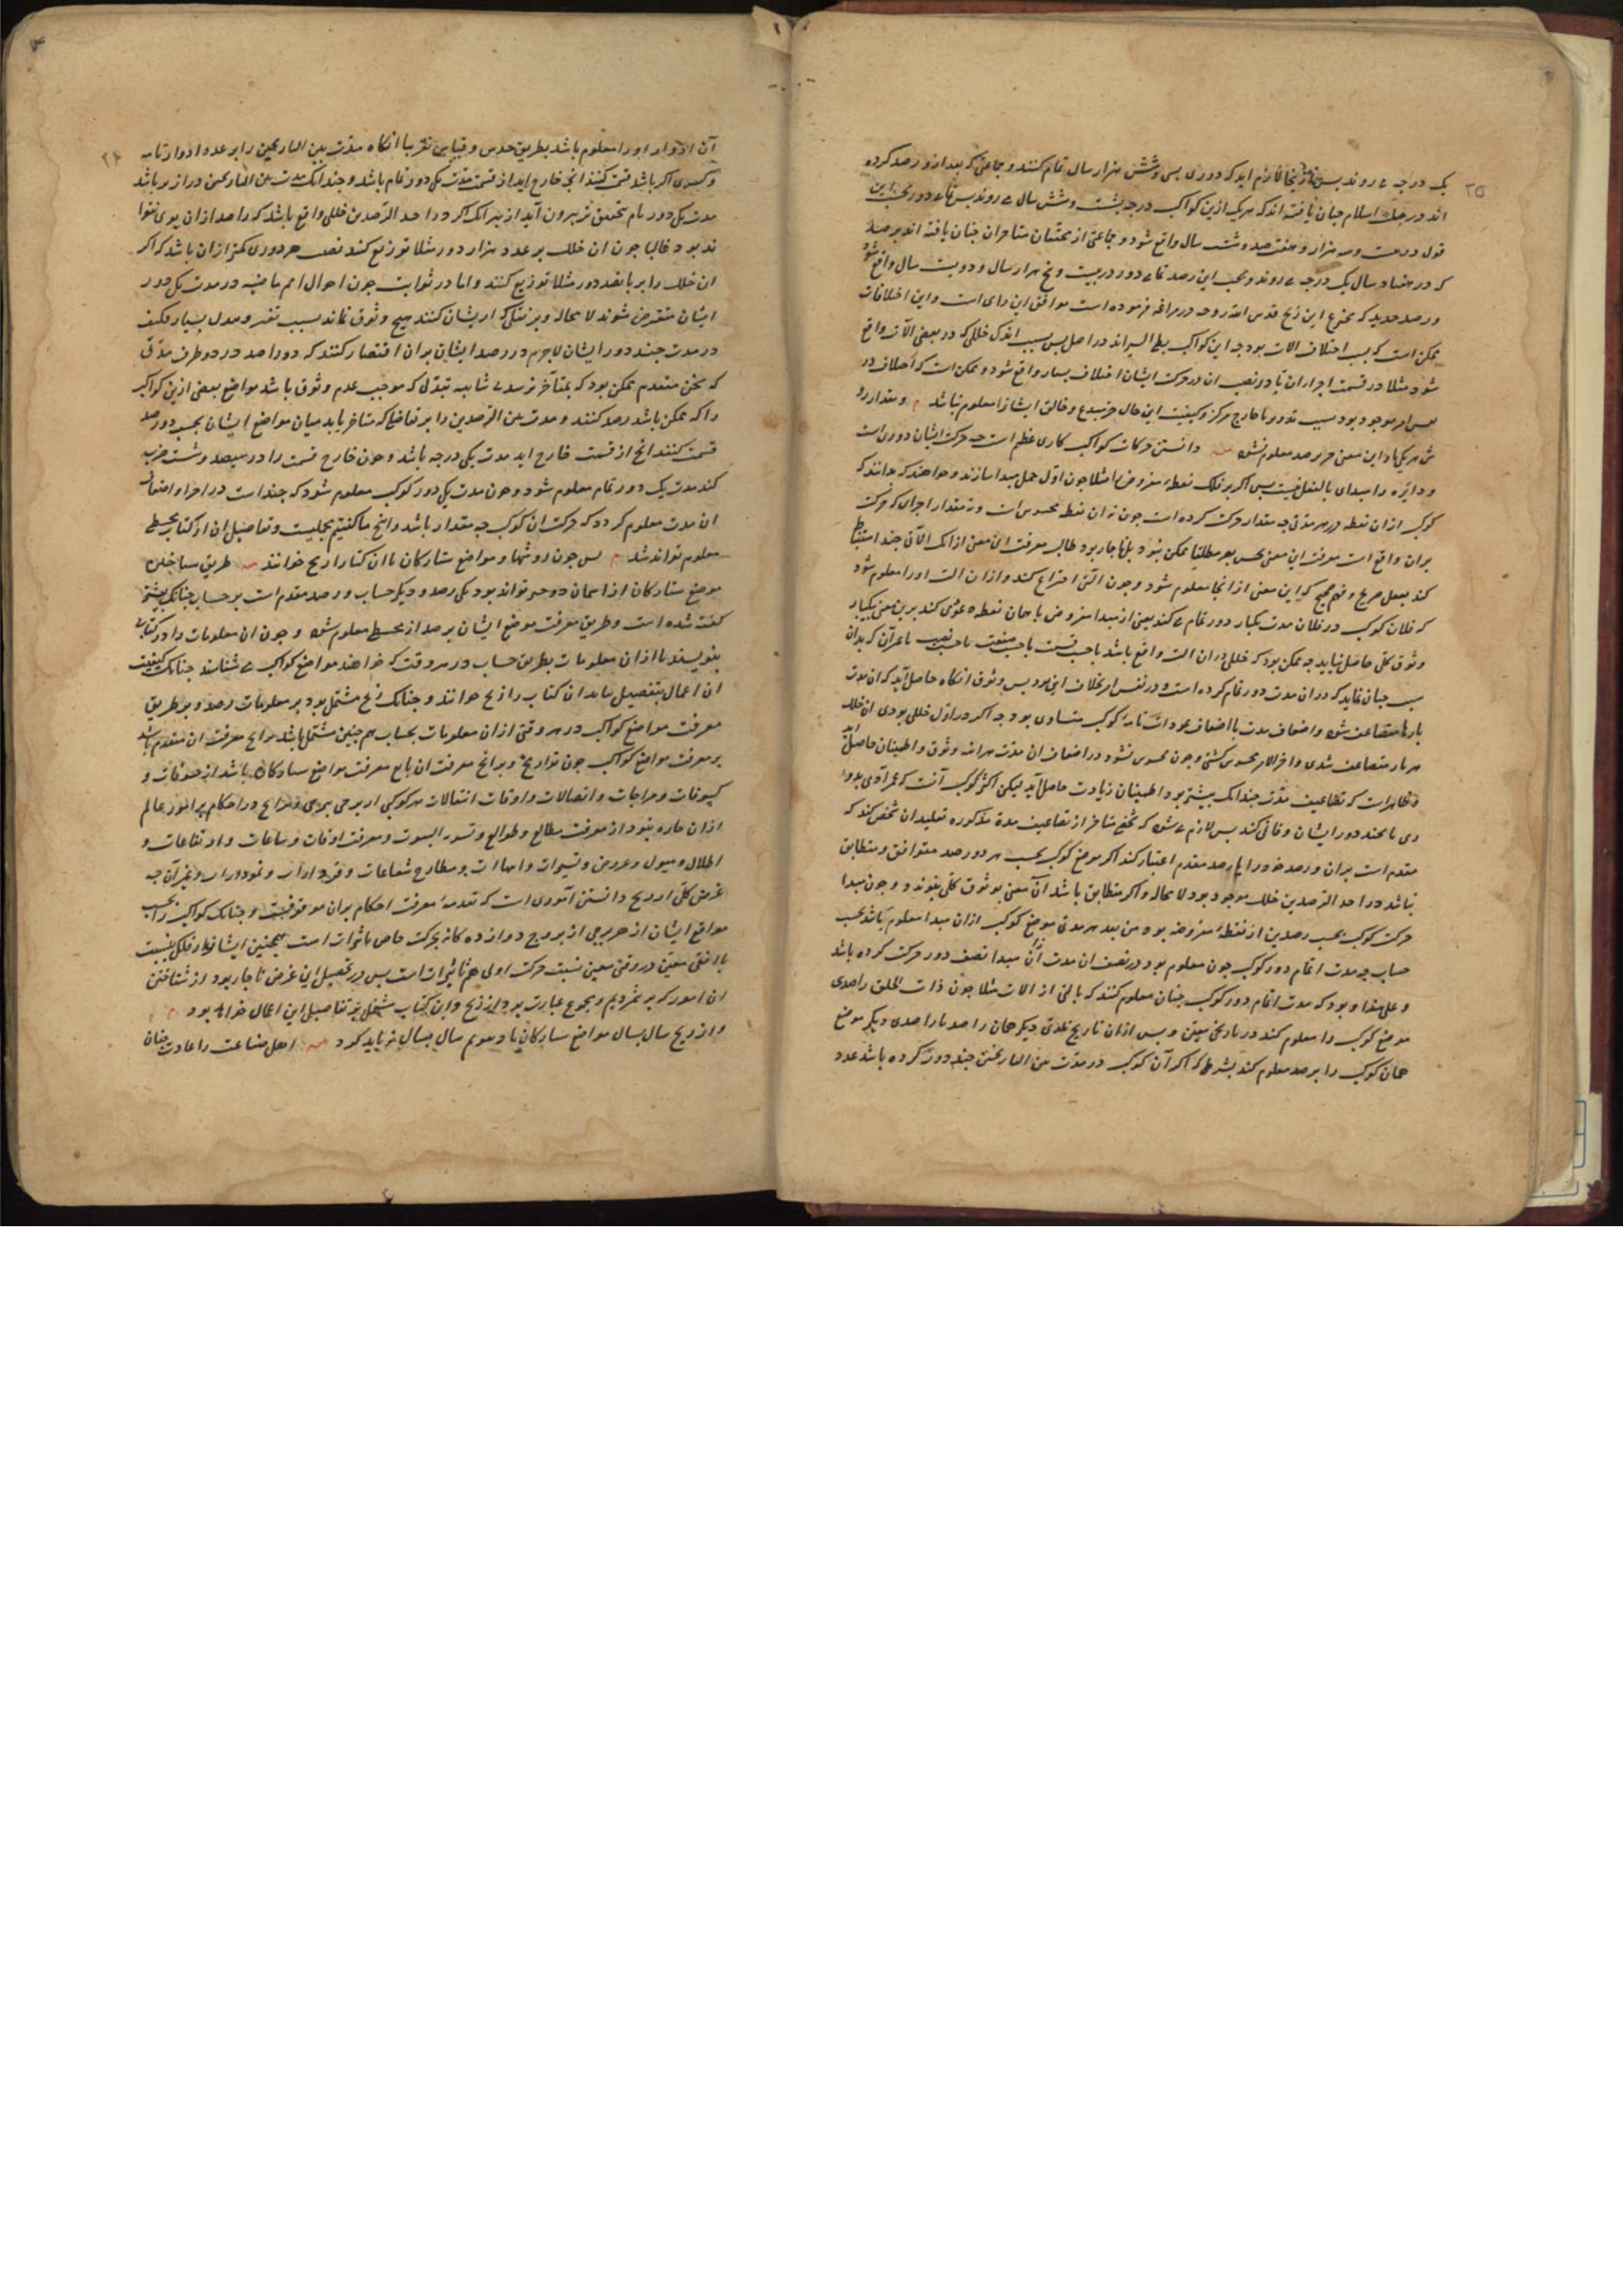 ۲۵
یک درجه می روند پس ازینجا لازم اید که دوری بسی و شش هزار سال تمام کنند و جماعتی که بعد از و رصد کرده
اند در جنان یافته اند که هریک ازین کواکب درجه بشصت و شش سال می روند پس تمامی دور بحسب این
قول در بیست و سه هزار و هفتصد و شصت سال واقع شود و جماعتی از محققان متاخران چنان یافته اند برصد
که در هفتاد سال یک درجه می روند و بحسب این رصد تمامی دور در بیست و پنج هزار سال و دویست سال واقع شود
و رصد جدید که مخترع این زیج قدس الله روحه در مراغه فرموده است موافق این رای است و این اختلافات
ممکن است که بسبب اختلاف الات بود چه این کواکب بطی السیر اند در اصل پس بسبب اندک خللی که در بعضی آلات واقع
شود مثلا در قسمت اجزا ان یا در نصب ان در حرکت ایشان اختلاف بسیار واقع شود و ممکن است که اختلاف در
نفس امر موجود بود بسبب تدویر یا خارج مرکز و کیفیت این حال جز مبدع و خالق ایشانرا معلوم نباشد م و مقدار رو
ش هر یکی را این معنی جز برصد معلوم نشود دانستن حرکات کواکب کاری عظیم است چه حرکت ایشان دوری است
و دایره را مبدای بالفعل نیست پس اکر بر فلک نقطه مفروض را مثلا جون اول حمل مبدا سازند و خواهند که بدانند که
کوکب ازان نقطه در هر مدتی چه مقدار حرکت کرده است جون نه ان نقطه محسوس است و نه مقدار اجزای که حرکت
بران واقع است معرفت این معنی بحس بصر مطلقا ممکن نبود بل ناچار بود طالب معرفت این معنی از انک الآتی چند استنباط
کند بعقل صریح و فهم صحیح که این معنی از انجا معلوم شود و جون التی اختراع کند و ازان الت او را معلوم شود
که فلان کوکب در فلان مدت یکبار دور تمام می کند یعنی از مبدا مفروض با همان نقطه عودی کند برین معنی بیکبار
وثوق کلی حاصل نیاید چه ممکن بود که خللی دران الت واقع باشد یا بحسب قسمت یا بحسب صنعت یا بحسب نصب یا غیرآن که بدان
سبب جنان نماید که دران مدت دور تمام کرده است و در نفس امر بخلاف این بود پس وثوق انکاه حاصل آید که ان مدت
بارها متضاعف شود و اضعاف مدت با اضعاف عودات تامه کوکب متساوی بود چه اکر در اول خللی بودی ان خلل
هر بار متضاعف شدی و اخر الامر محسوس کشتی و جون محسوس نشود در اضعاف ان مدت هراینه وثوق و اطمینان حاصل اید
و ظاهرست که تضاعیف مدت چندانک بیشتر بود اطمینان زیادت حاصل آید لیکن اکثر کوکب آنست که عمر آدمی بدو
ری یا بچند دور ایشان وفا نمی کند پس لازم می شود که شخص متاخر از تضاعیف مدة مذکوره تقلید ان شخص کند که
متقدم است بران و رصد خود را با رصد متقدم اعتبار کند اکر موضع کوکب بحسب هر دو رصد متوافق و متطابق
نباشد در احد الرصدین خلل موجود بود لا محاله و اکر متطابق باشد آن معنی بوثوق کلی بپیوندد و جون مبدا
حرکت کوکب بحسب رصدین از نقطه مفروضه بود من بعد هر مدتی موضع کوکب ازان مبدا معلوم باشد بحسب
حساب چه مدت اتمام دور کوکب جون معلوم بود در نصف ان مدت از آن مبدا نصف دور حرکت کرده باشد
و علی هذا و بود که مدت اتمام دور کوکب جنان معلوم کنند که بالتی از الات مثلا جون ذات الحلق راصدی
موضع کوکب را معلوم کند در تاریخی معین و پس ازان تاریخ بمدتی دیکر همان راصد یا راصدی دیکر موضع
همان کوکب را برصد معلوم کند بشرطی که اکر آن کوکب در مدت بین التاریخین جند دورت کرده باشد عدد
۲۴
آن ادوار او را معلوم باشد بطریق حدس و قیاس تقریبا انکاه مدت بین التاریخین را بر عدد ادوار تامه
و کسری اکر باشد قسمت کنند انچ خارج اید از قسمت مدت یک دور تمام باشد و جندانک مدت بین التاریخین درازتر باشد
مدت یک دور تام بتحقیق تر بیرون آید از بهر انک اکر در احد الرصدین خللی واقع باشد که راصد ازان بوی
نبود غالبا جون ان خلل بر عدد هزار دور مثلا توزیع کند نصیب هر دوری کمتر ازان باشد که اکر
ان خلل را بر پانصد دور مثلا توزیع کنند و اما در ثوابت جون احوال امم ماضیه در مدت یک دور
ایشان منقرض شوند لا محاله و بر نقلی که از ایشان کنند هیچ وثوق نماند بسبب تغیر و تبدل بسیار فکیف
در مدت چند دور ایشان لاجرم در رصد ایشان بران اقتصار کنند که دو راصد در دو طرف مدتی
که سخن متقدم ممکن بود که بمتاخر برسد بی شایبه تبدلی که موجب عدم وثوق باشد مواضع بعضی ازین کواکب
را که ممکن باشد رصد کنند و مدت بین الرصدین را بر تفاضلی که متاخر یابد میان مواضع ایشان بحسب دو رصد
قسمت کنند انچ از قسمت خارج اید مدت یک درجه باشد و جون خارج قسمت را در سیصد و شصت ضرب
کند مدت یک دور تمام معلوم شود و جون مدت یک دور کوکب معلوم شود که چنداست در اجزا و اضعاف
ان مدت معلوم کردد که حرکت ان کوکب چه مقدار باشد و انچ ما کفتیم بجملیست و تفاصیل ان از کتاب مجسطی
معلوم تواند شد م پس جون روشها و مواضع ستارکان با ان کتاب را زیج خوانند طریق شناختن
موضع ستارکان از اسمان دو چیز تواند بود یکی رصد و دیکر حساب و رصد مقدم است بر حساب جنانک پیشتر
کفته شده است و طریق معرفت موضع ایشان برصد از مجسطی معلوم شود و جون ان معلومات را در کتاب
بنویسند تا ازان معلومات بطریق حساب در هر وقت که خواهند مواضع کواکب می شناسند جنانک کیفیت
ان اعمال بتفصیل بیاید ان کتاب را زیج خوانند و جنانک زیج مشتمل بود بر معلومات رصد و بر طریق
معرفت مواضع کواکب در هر وقتی ازان معلومات بحساب هم چنین مشتمل باشد بر انچ معرفت ان متقدم باشد
بر معرفت مواضع کواکب جون تواریخ و بر انچ معرفت ان تابع معرفت مواضع ستارکان باشد از خسوفات و
کسوفات و ممازجات و اتصالات و اوقات انتقالات هر کوکبی از برجی ببرجی و بر انچ در احکام بر امور عالم
ازان چاره نبود از معرفت مطالع و طوالع و تسویة البیوت و معرفت اوقات و ساعات و ارتفاعات و
اظلال و میول و عروض و تسییرات و انتهاات و مطارح شعاعات و فردارات و نمودارات و غیر آن چه
غرض کلی از زیج دانستن آموری است که تقدمه معرفت احکام بران موقوفست و جنانک کواکب را بحسب
مواقع ایشان از هر برجی از بروج دوازده کانه بحرکت خاص تاثیرات است همچنین ایشانرا و فلک را بنسبت
با افقی معین در وقتی معین نسبت حرکت اولی هم تاثیرات است پس در تحصیل این غرض ناچار بود از شناختن
ان امور که بر شمردیم و مجموع عبارت بود از زیج و این کتاب مشتمل بر تفاصیل این اعمال خواهد بود م
و از زیج سال بسال مواضع ستارکان با دو تقویم سال بسال برباید کرد اهل صناعت را عادت جنان